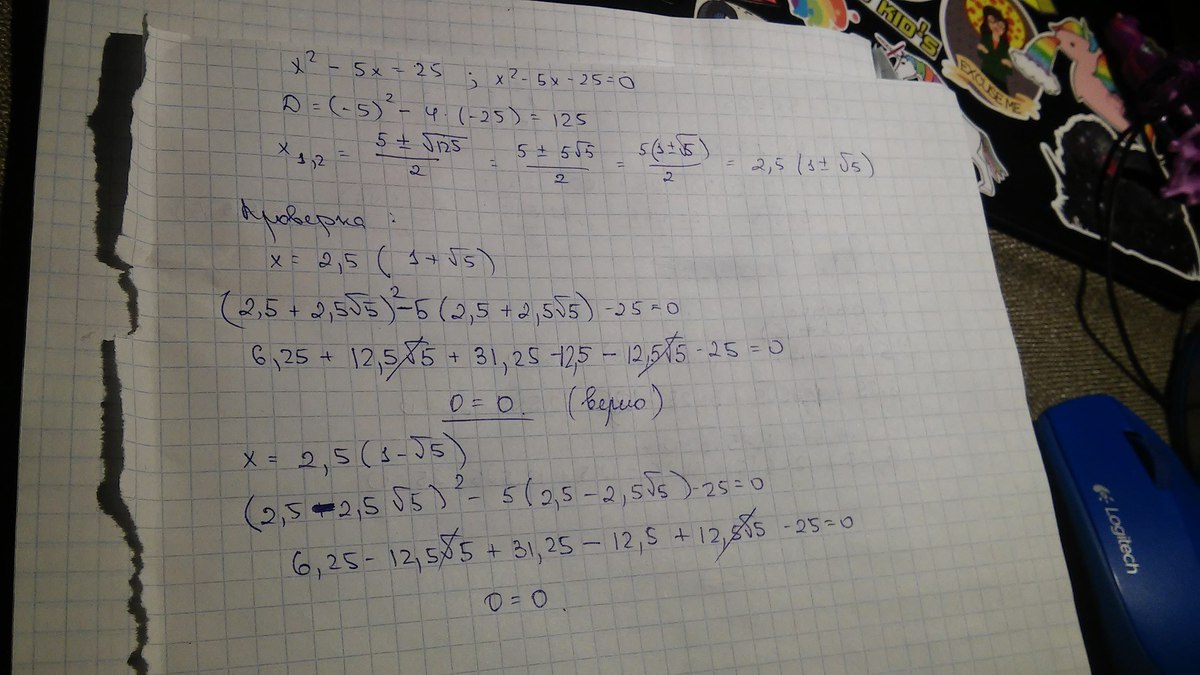 x² - 5x = 25 ; x² - 5x - 25 = 0
D = (-5)² - 4 · (-25) = 125
x₁,₂ = (5 ± √125)/2 = (5 ± 5√5)/2 = 5(1±√5)/2 = 2,5 (1± √5)
Проверка :
x = 2,5 ( 1 + √5)
(2,5 + 2,5√5)² - 5 (2,5 + 2,5√5) - 25 = 0
6,25 + 12,5√5 + 31,25 - 12,5 - 12,5√5 - 25 = 0
0 = 0. (верно)
x = 2,5 (1 - √5)
(2,5 - 2,5 √5)² - 5 (2,5 - 2,5√5) - 25 = 0
6,25 - 12,5√5 + 31,25 - 12,5 + 12,5√5 - 25 = 0
0 = 0.
KID'S
EXCUSE ME
Logitech